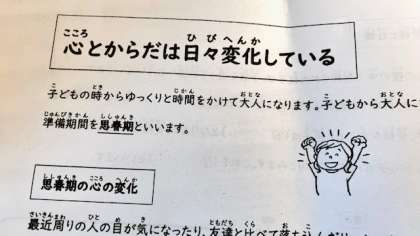 心とからだは日々変化している
子どもの時からゆっくりと時間をかけて大人になります。子どもから大人に
準備期間を思春期といいます。
思春期の心の変化
最近周りの人の目が気になったり、友達と比べて落ち込んだり